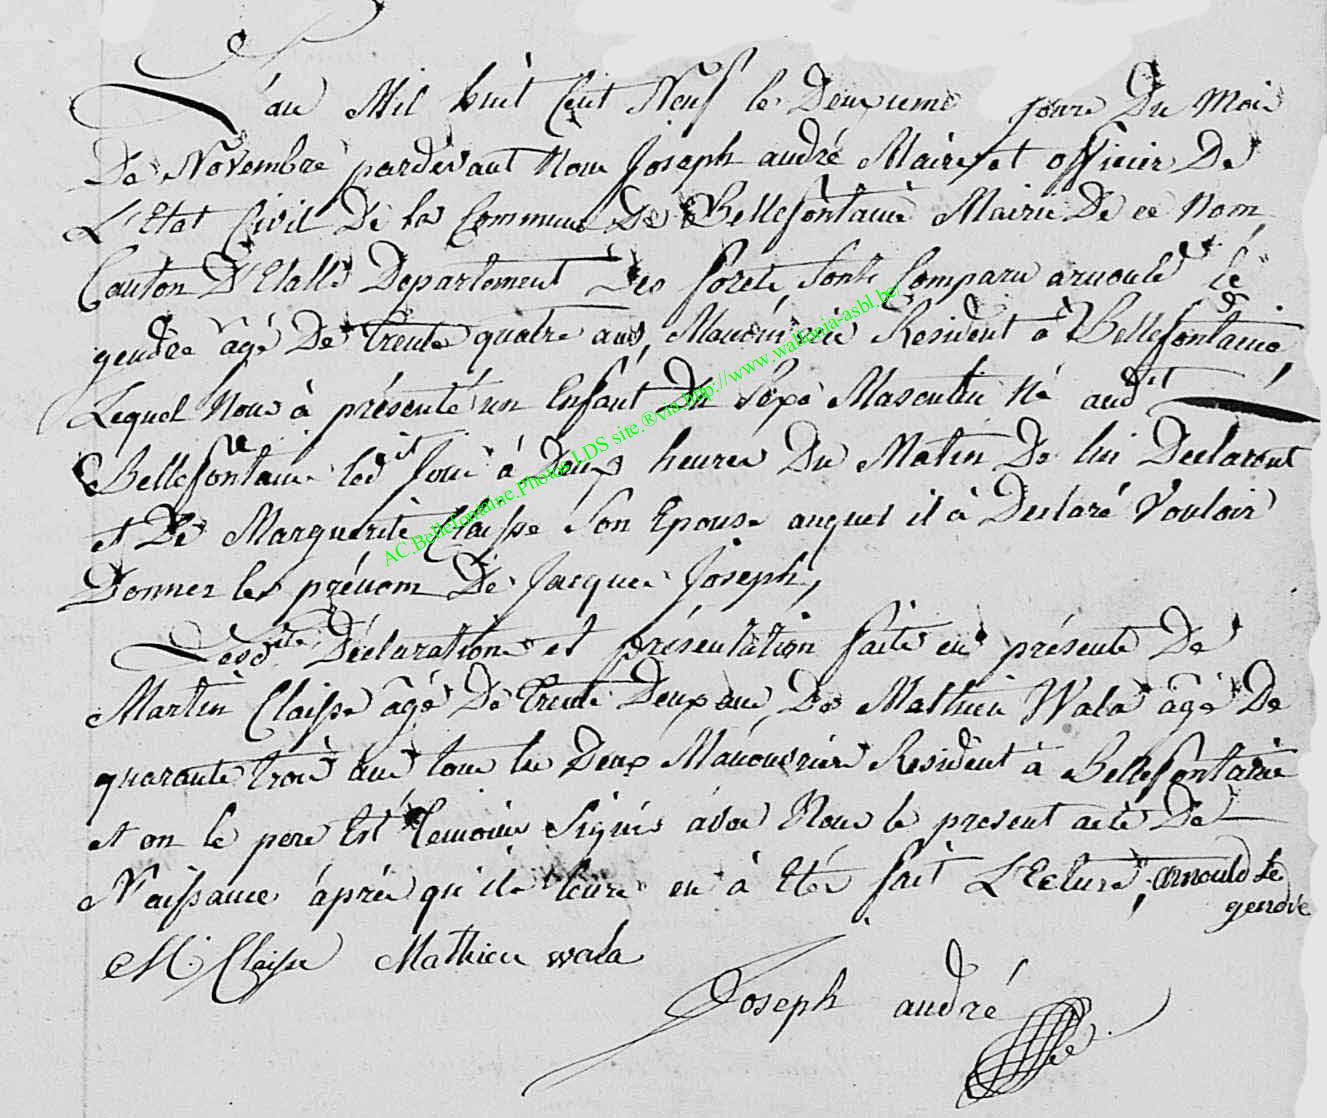 L'an Mil huit Cent Neuf le Deuxieme jour Du Mois
De Novembre pardevant Nous Joseph andré Maire et officier De
L'Etat Civil De la Commune De Bellefontaine Mairie De ce Nom,
Canton D'Etalle Departement Des foret Sont Comparu arnould Le
gendre âgé De trente quatre ans, Manouvrier Resident à Bellefontaine,
Lequel Nous à présenté un Enfant du Sexe Masculin Né audit
Bellefontaine ledit Jour à Deux heures Du Matin De lui Declarant
et De Marguerite Claisse Son Epouse auquel il à Declaré Vouloir
Donner les prénom De Jacque Joseph,
Lesdite Déclaration et présentation faite en présente De
Martin Claisse âgé De trente Deux ans, De Mathieu Wala âgé De
quarante trois ans tous les Deux Manouvrier Resident à Bellefontaine
et on le pere Est temoins Signés avec Nous le present acte De
Naissance áprés qu'ils leure en à Eté fait L'Ecture, arnould Le
gendre
M. Claisse Mathieu wala
Joseph andré
AC.Bellefontaine.Photos LDS site.®via http://www.wallonia-asbl.be/